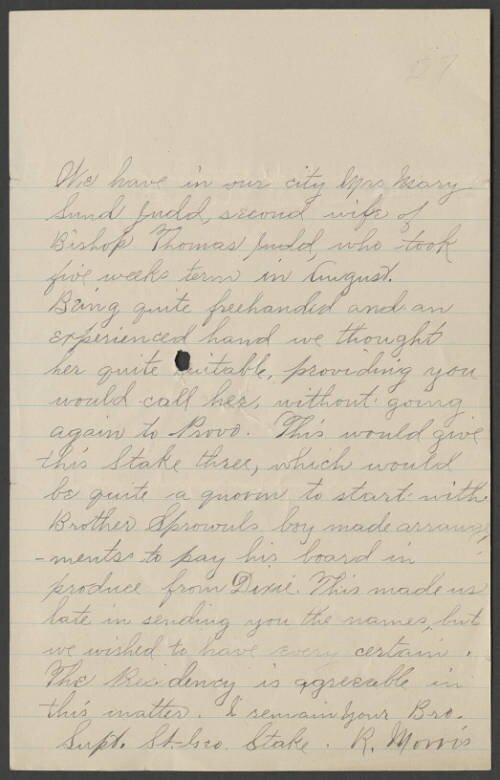 57
We have in our city Mrs Mary
Lund Judd, second wife of
Bishop Thomas Judd, who took
five weeks term in August.
Being quite freehanded and an
experienced hand we thought
her quite suitable, providing you
would call her, without going
again to Provo. This would give
this Stake three, which would
be quite a quorm to start with
Brother Sprowuls boy made arrange,
-ments to pay his board in
produce from Dixie. This made us
late in sending you the names, but
we wished to have every certain.
The Residency is agreeable in
this matter. I remain Your Bro.
Supt. St. Geo. Stake. R. Morris